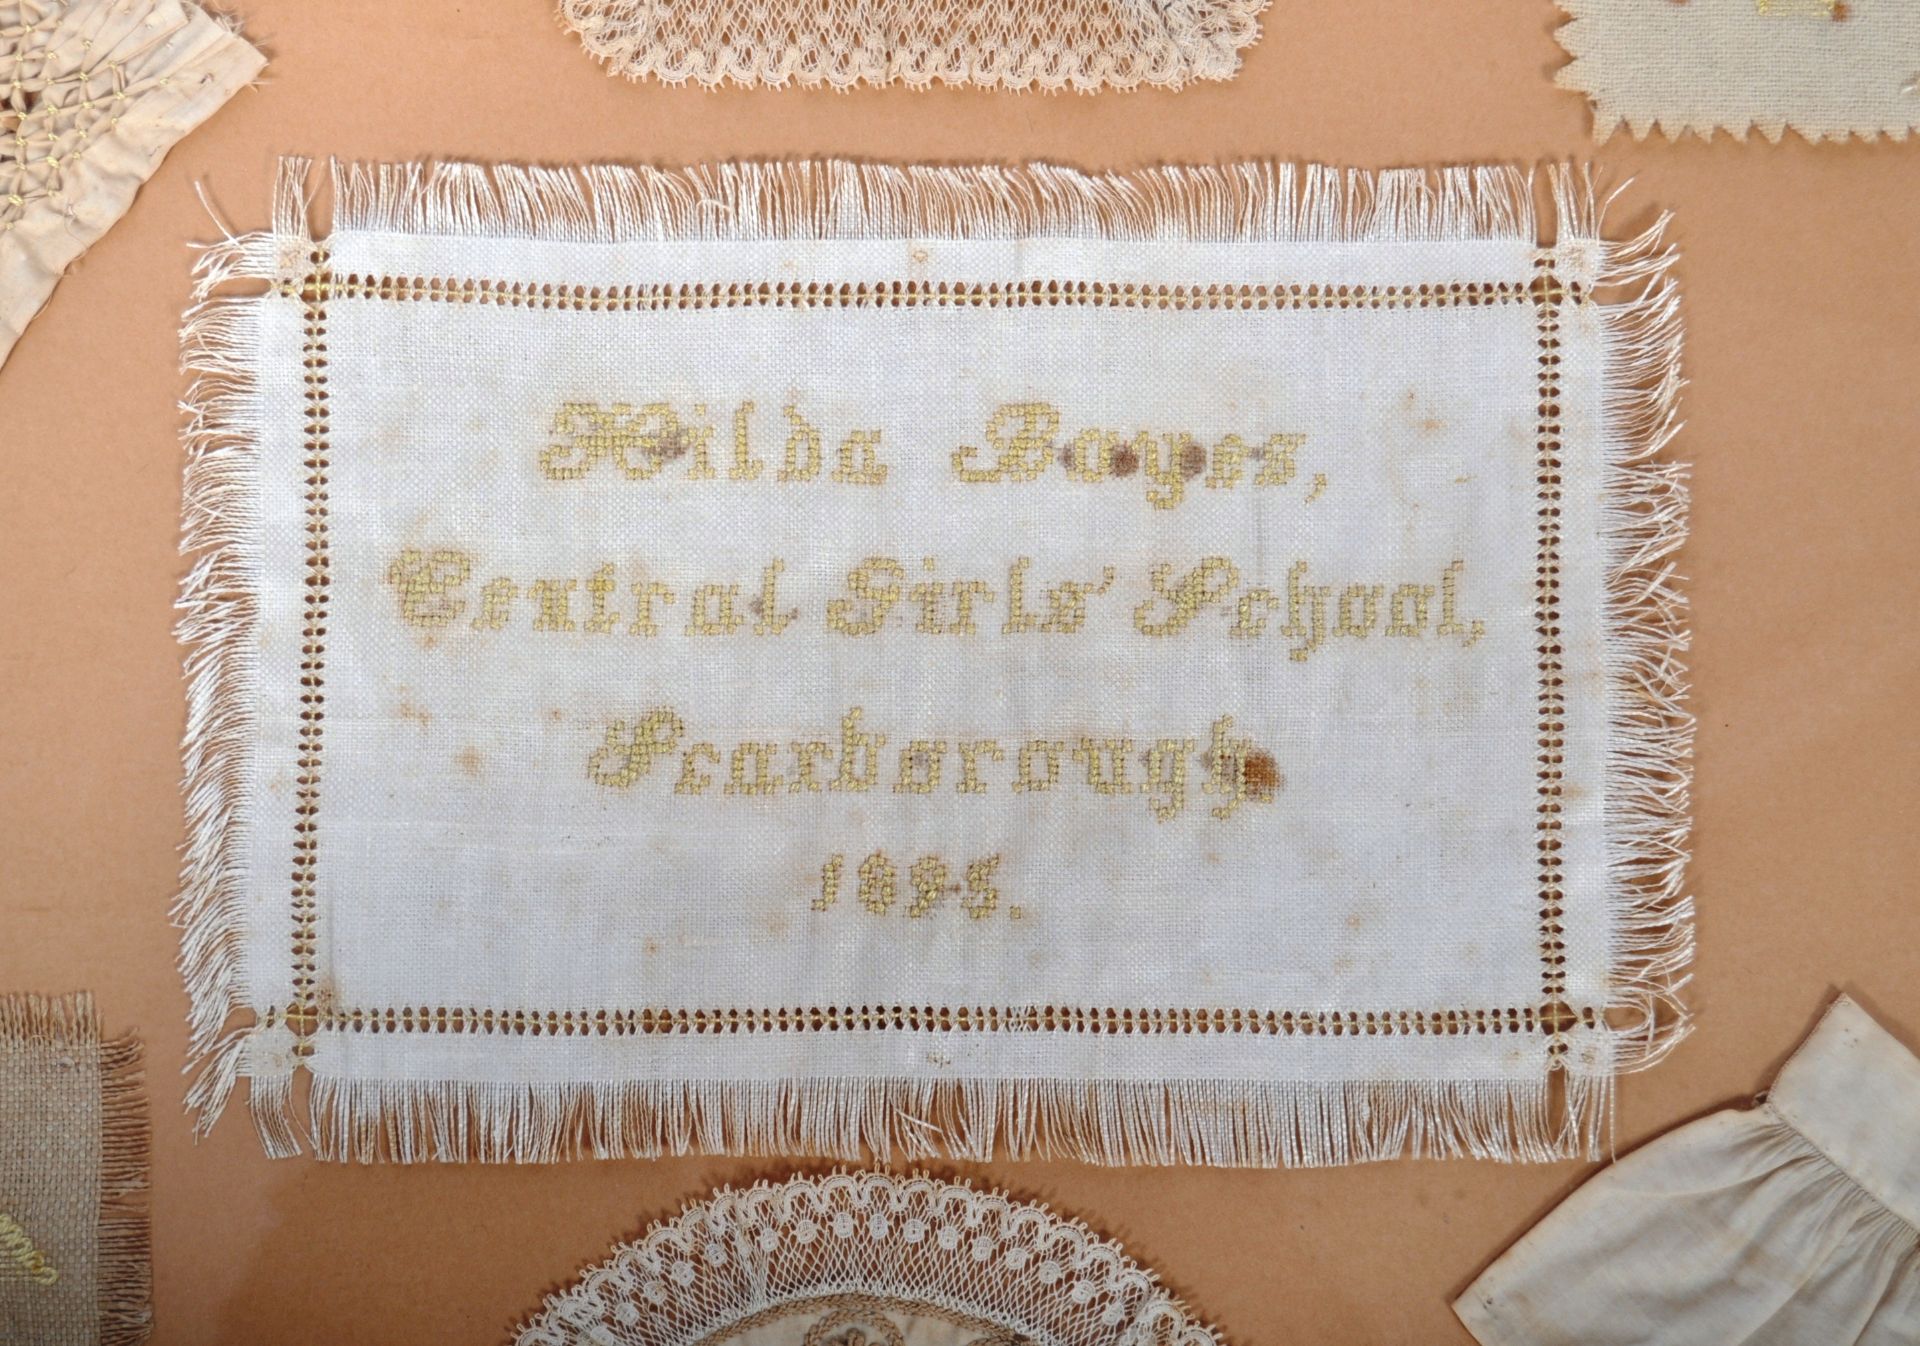 Hilda Bayes,
Central Girls' School,
Scarborough
1895.